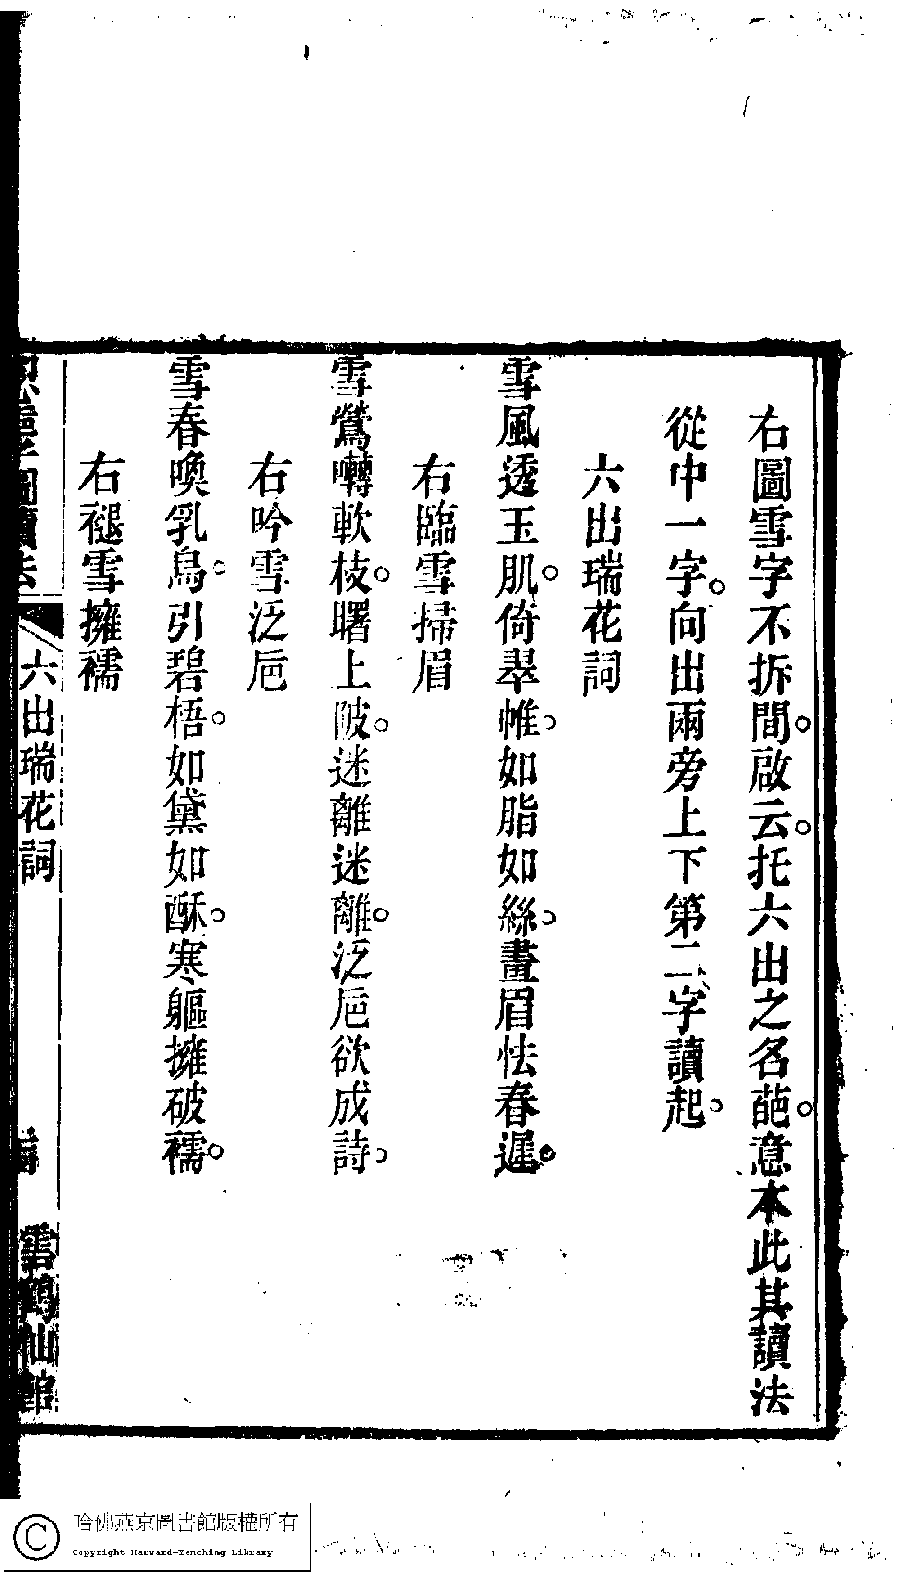 右圖雪字不拆間。啟云。托六出之名葩。意本此其讀法
從中一字。向出兩旁上下第二字讀起。
六出瑞花詞
雪風透玉肌。倚翠帷。如脂如絲。畫眉怯春遲。
右臨雪掃眉
雪鶯囀軟枝。曙上陂。迷離迷離。泛卮欲成詩。
右吟雪泛卮
雪春喚乳鳥。引碧梧。如黛如酥。寒軀擁破襦。
右褪雪擁襦
圖讀法
六出瑞花詞
鶴仙館
哈佛燕京圖書館版權所有
Copyright Harvard-Yenching Library